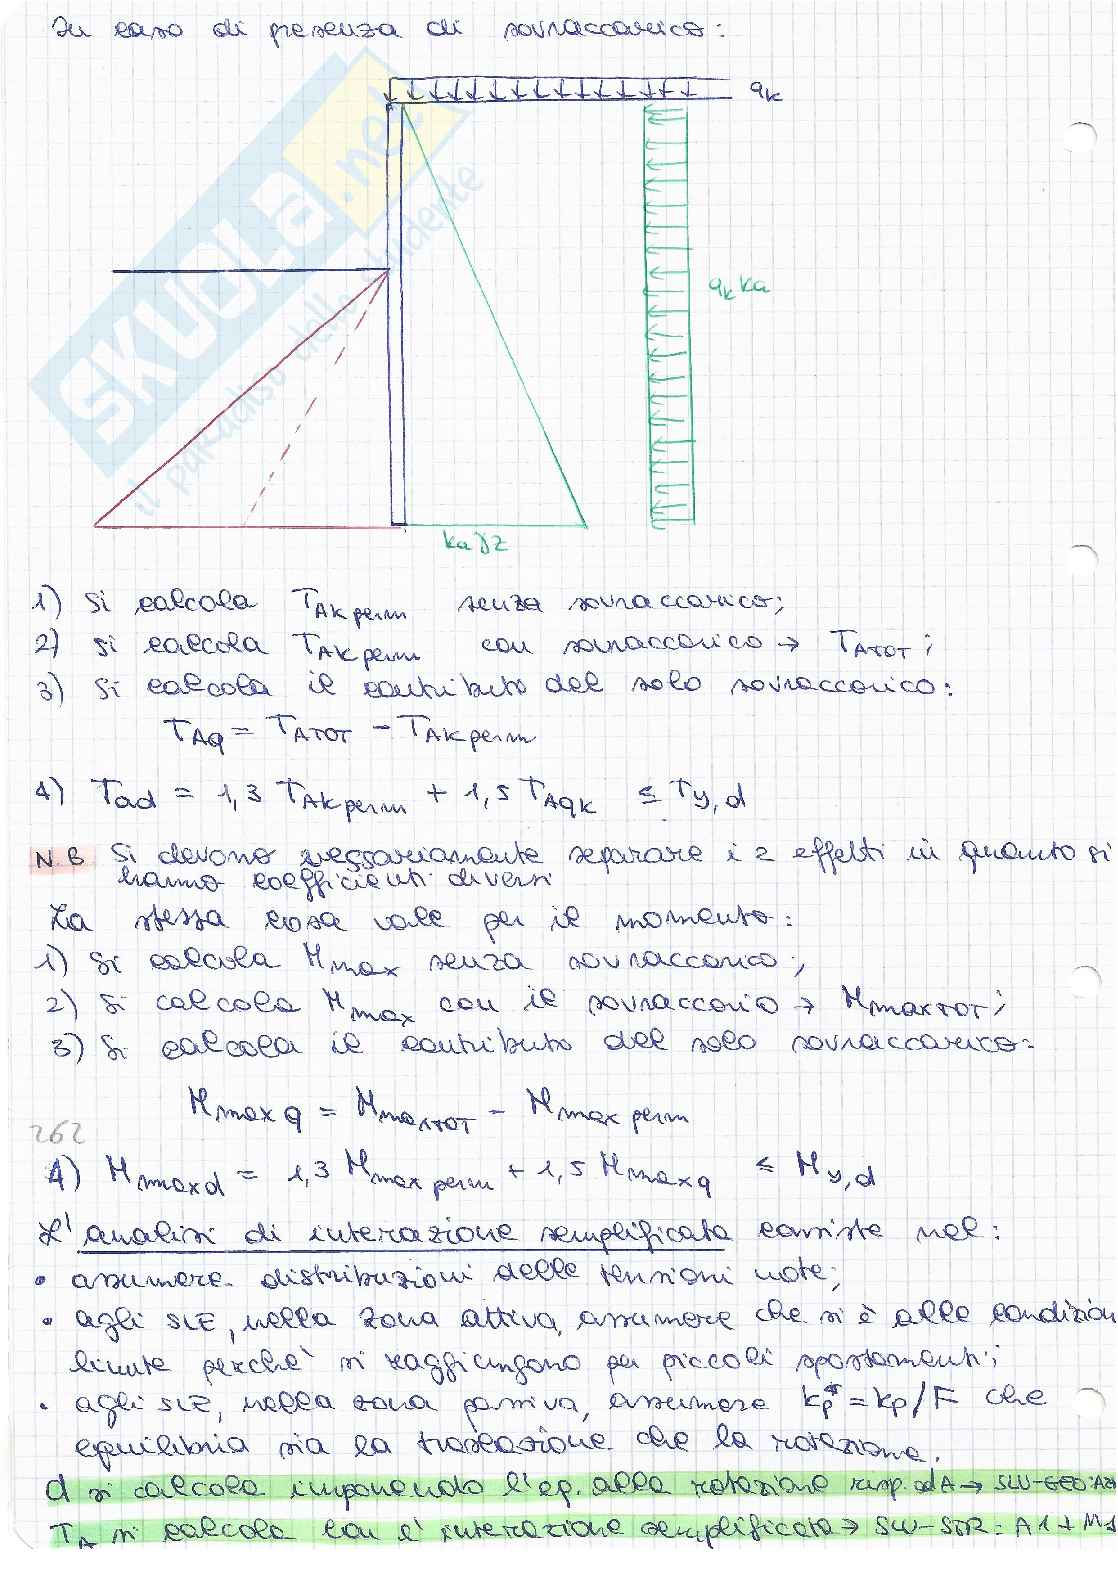 In caso di presenza di sovraccarico:
qk
SKUOLA.net
il paradiso dello studente
qk ka
ka γ z
1) Si calcola TAk perm senza sovraccarico;
2) si calcola TAk perm con sovraccarico → TATOT;
3) Si calcola il contributo del solo sovraccarico:
TAq = TATOT - TAk perm
4) Tad = 1,3 TAk perm + 1,5 TAqk ≤ Ty,d
N.B Si devono necessariamente separare i 2 effetti in quanto si
hanno coefficienti diversi
La stessa cosa vale per il momento:
1) Si calcola Mmax senza sovraccarico;
2) Si calcola Mmax con il sovraccario → MmaxTOT;
3) Si calcola il contributo del solo sovraccarico:
Mmax q = MmaxTOT - Mmax perm
262
4) Mmax d = 1,3 Mmax perm + 1,5 Mmax q ≤ My,d
L'analisi di interazione semplificata consiste nel:
• assumere distribuzioni delle tensioni note;
• agli SLE, nella zona attiva, assumere che si è alle condizion
limite perchè si raggiungono per piccoli spostamenti;
• agli SLE, nella zona passiva, assumere kp* = kp/F che
equilibria sia la traslazione che la rotazione.
d si calcola imponendo l'eq. alla rotazione risp. ad A → SLU-GEO: A2
TA si calcola con l'interazione semplificata → SLU-STR: A1+M1